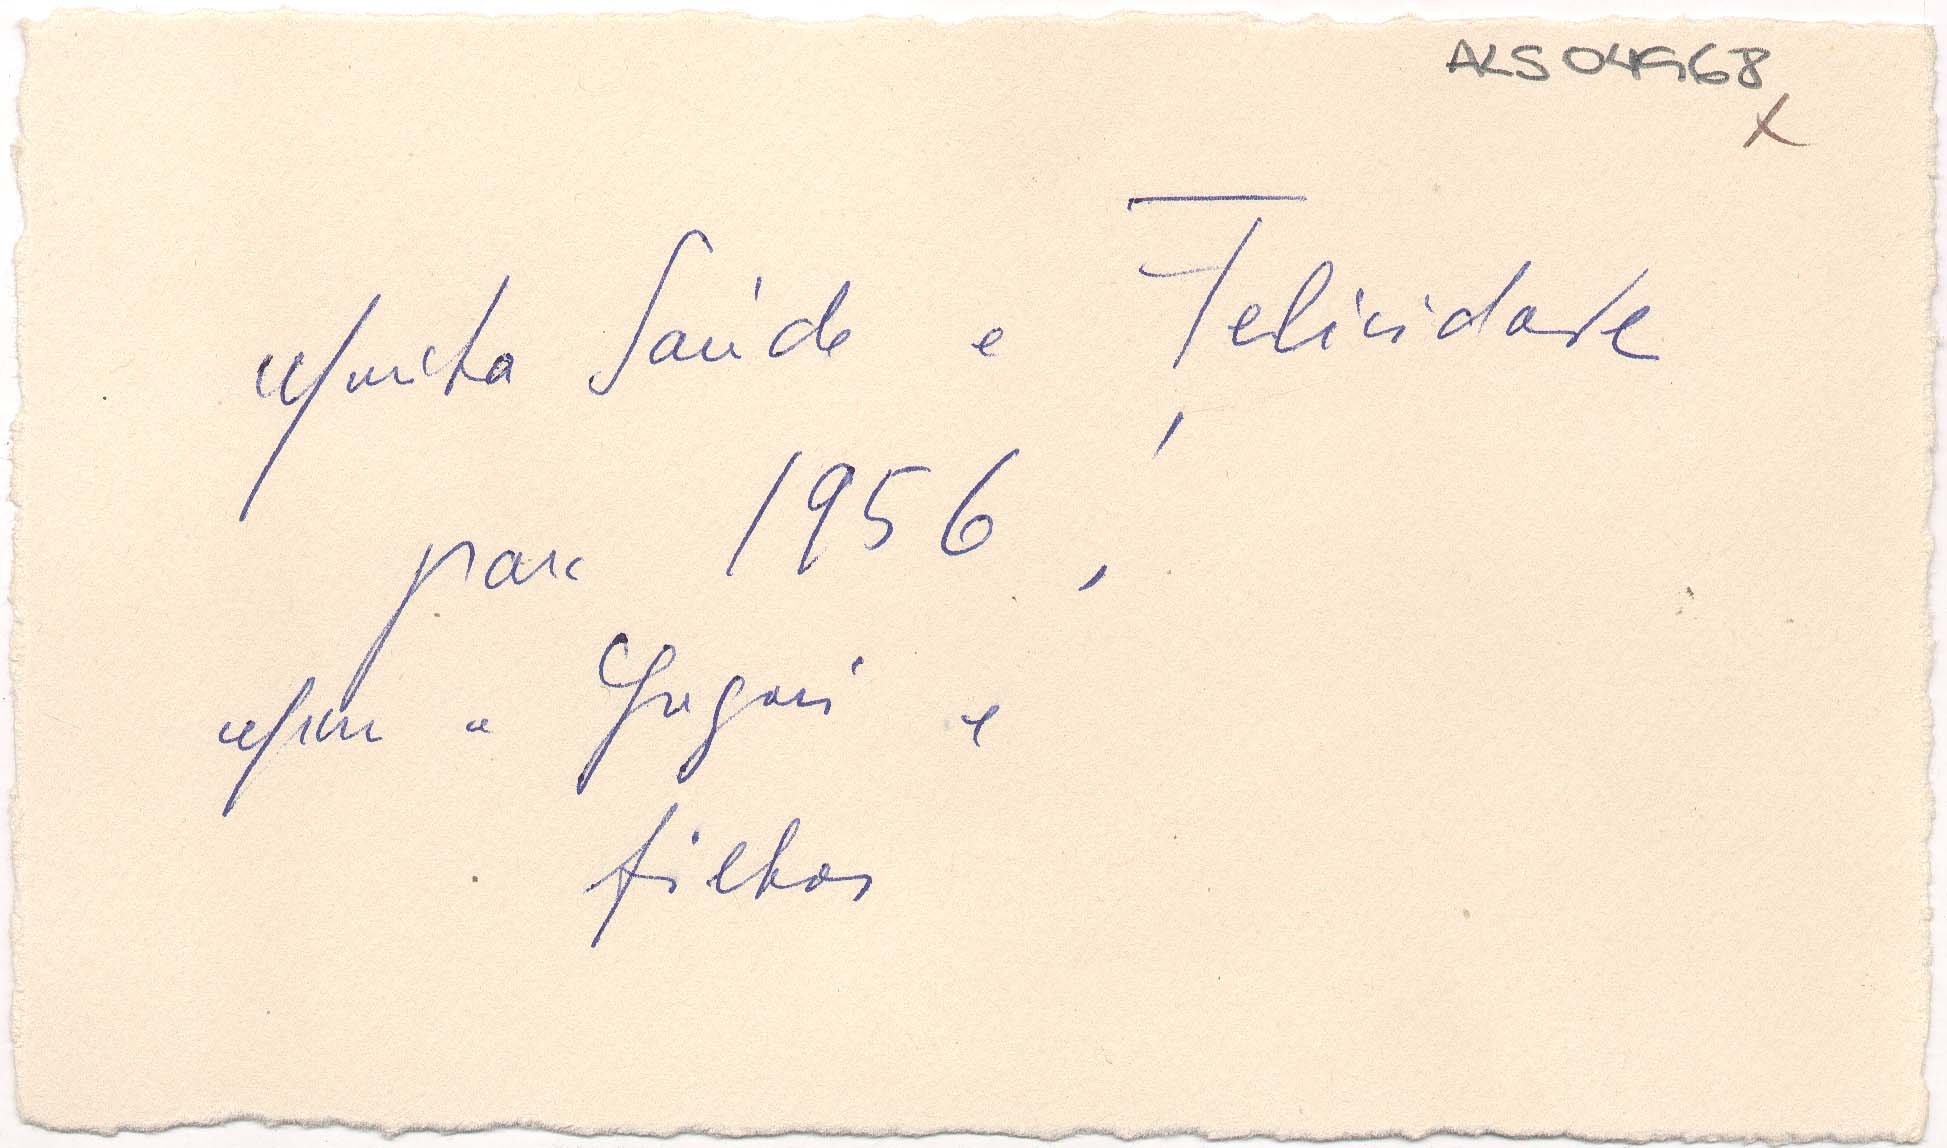 ALS04968
x
Muita Saúde e Felicidade
para 1956,
e Gregori e
filhos